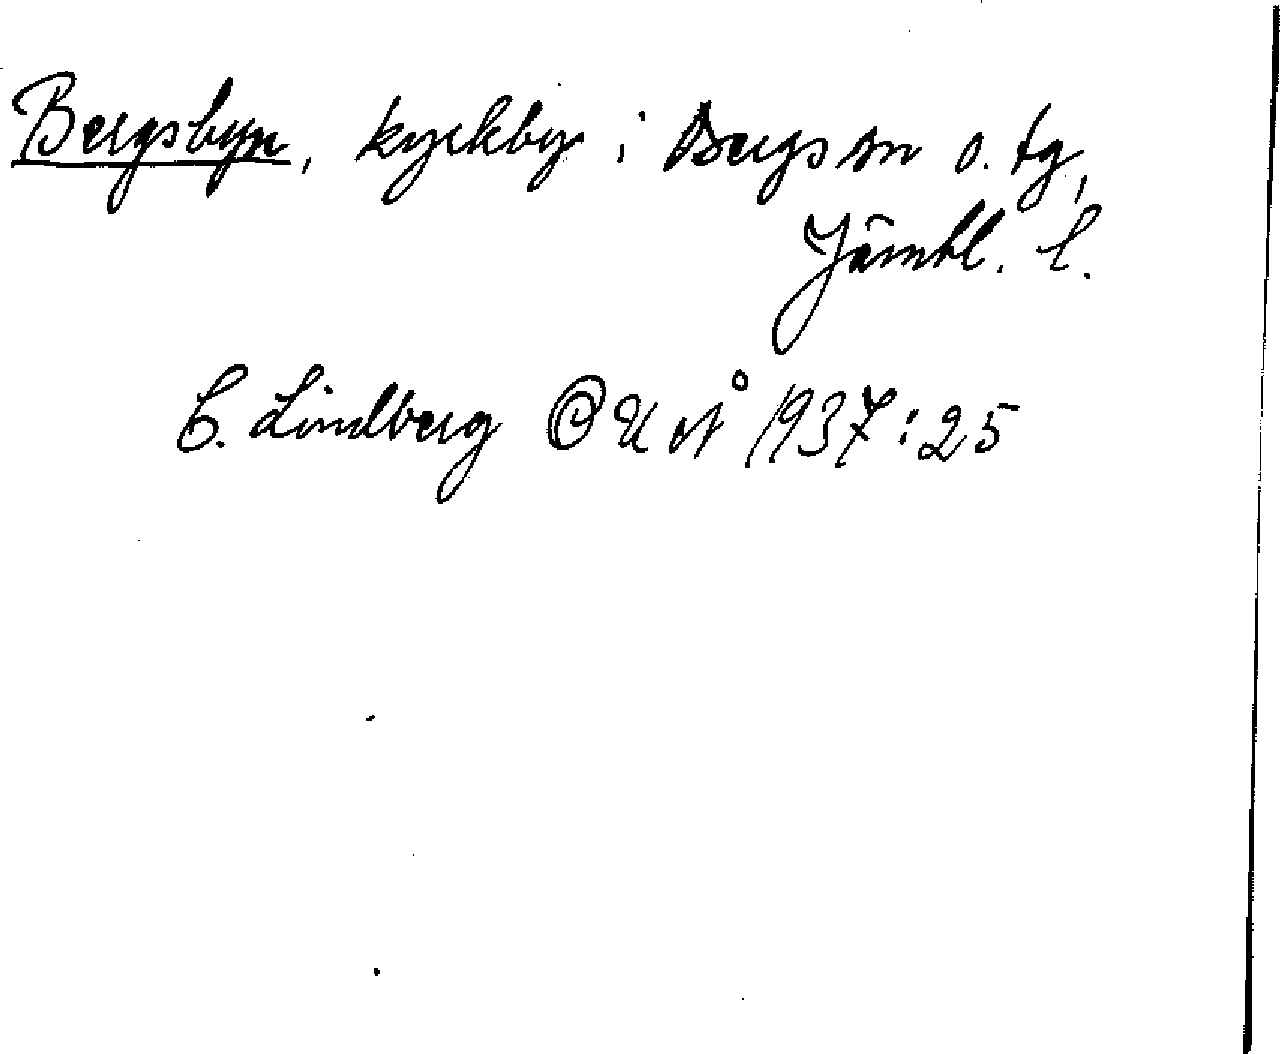 Bergsbyn, kyrkby i Bergs sn o. tg,
Jämtl. l.
C. Lindberg @ UUÅ 1937:25